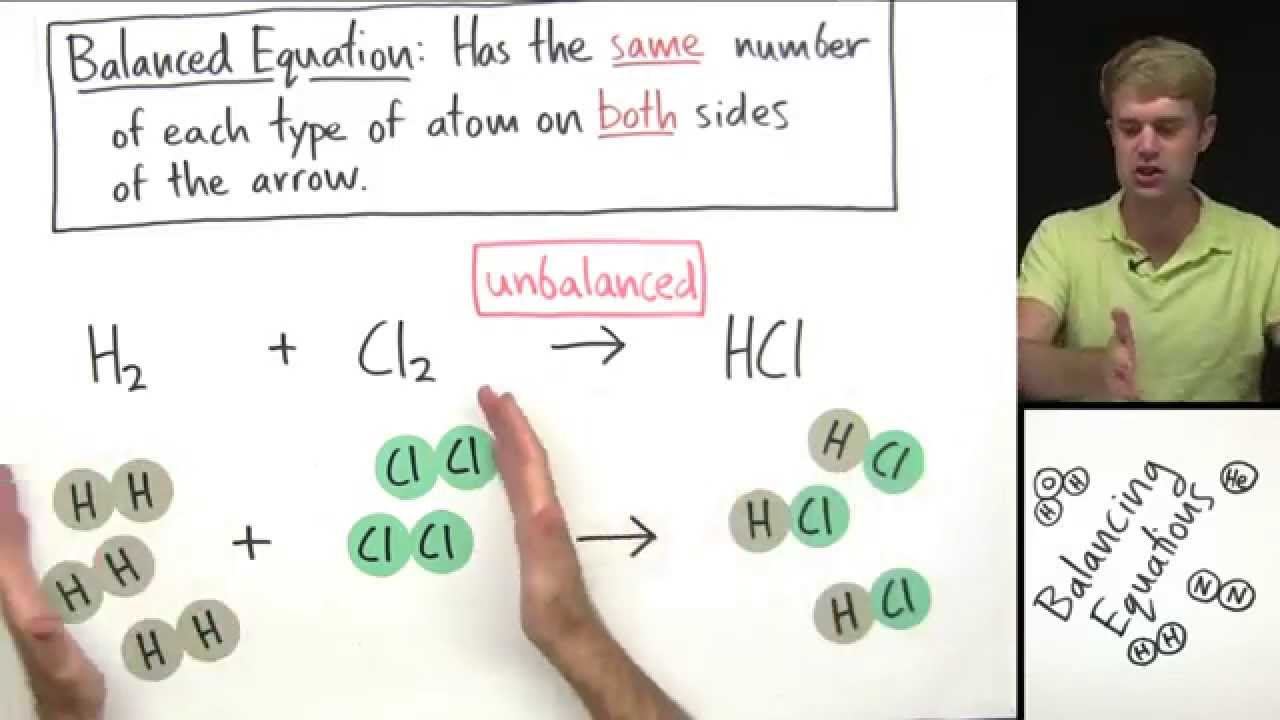 Balanced Equation: Has the same number
of each type of atom on both sides
of the arrow.
unbalanced
H₂ + Cl₂ → HCl
H H
H H
H H
+
Cl Cl
Cl Cl
→
H Cl
H Cl
H Cl
Balancing
Equations
O H
H
He
N N
H H